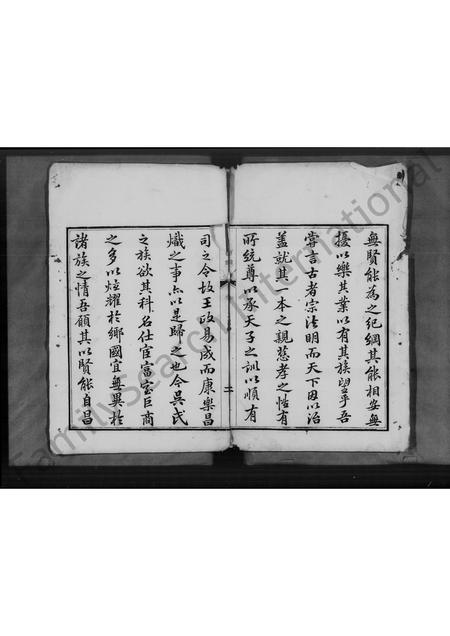 無賢能為之紀綱其能相安無
擾以樂其業以有其族望乎吾
嘗言古者宗法明而天下因以治
蓋就其一本之親慈孝之恉有
所統尊以承天子之訓以順有
二
司之令故王政易成而康樂昌
熾之事亦以是歸之也今吳氏
之族欲其科名仕宦富室巨商
之多以炫耀於鄉國宜無異於
諸族之情吾願其以賢能自昌
FamilySearch International